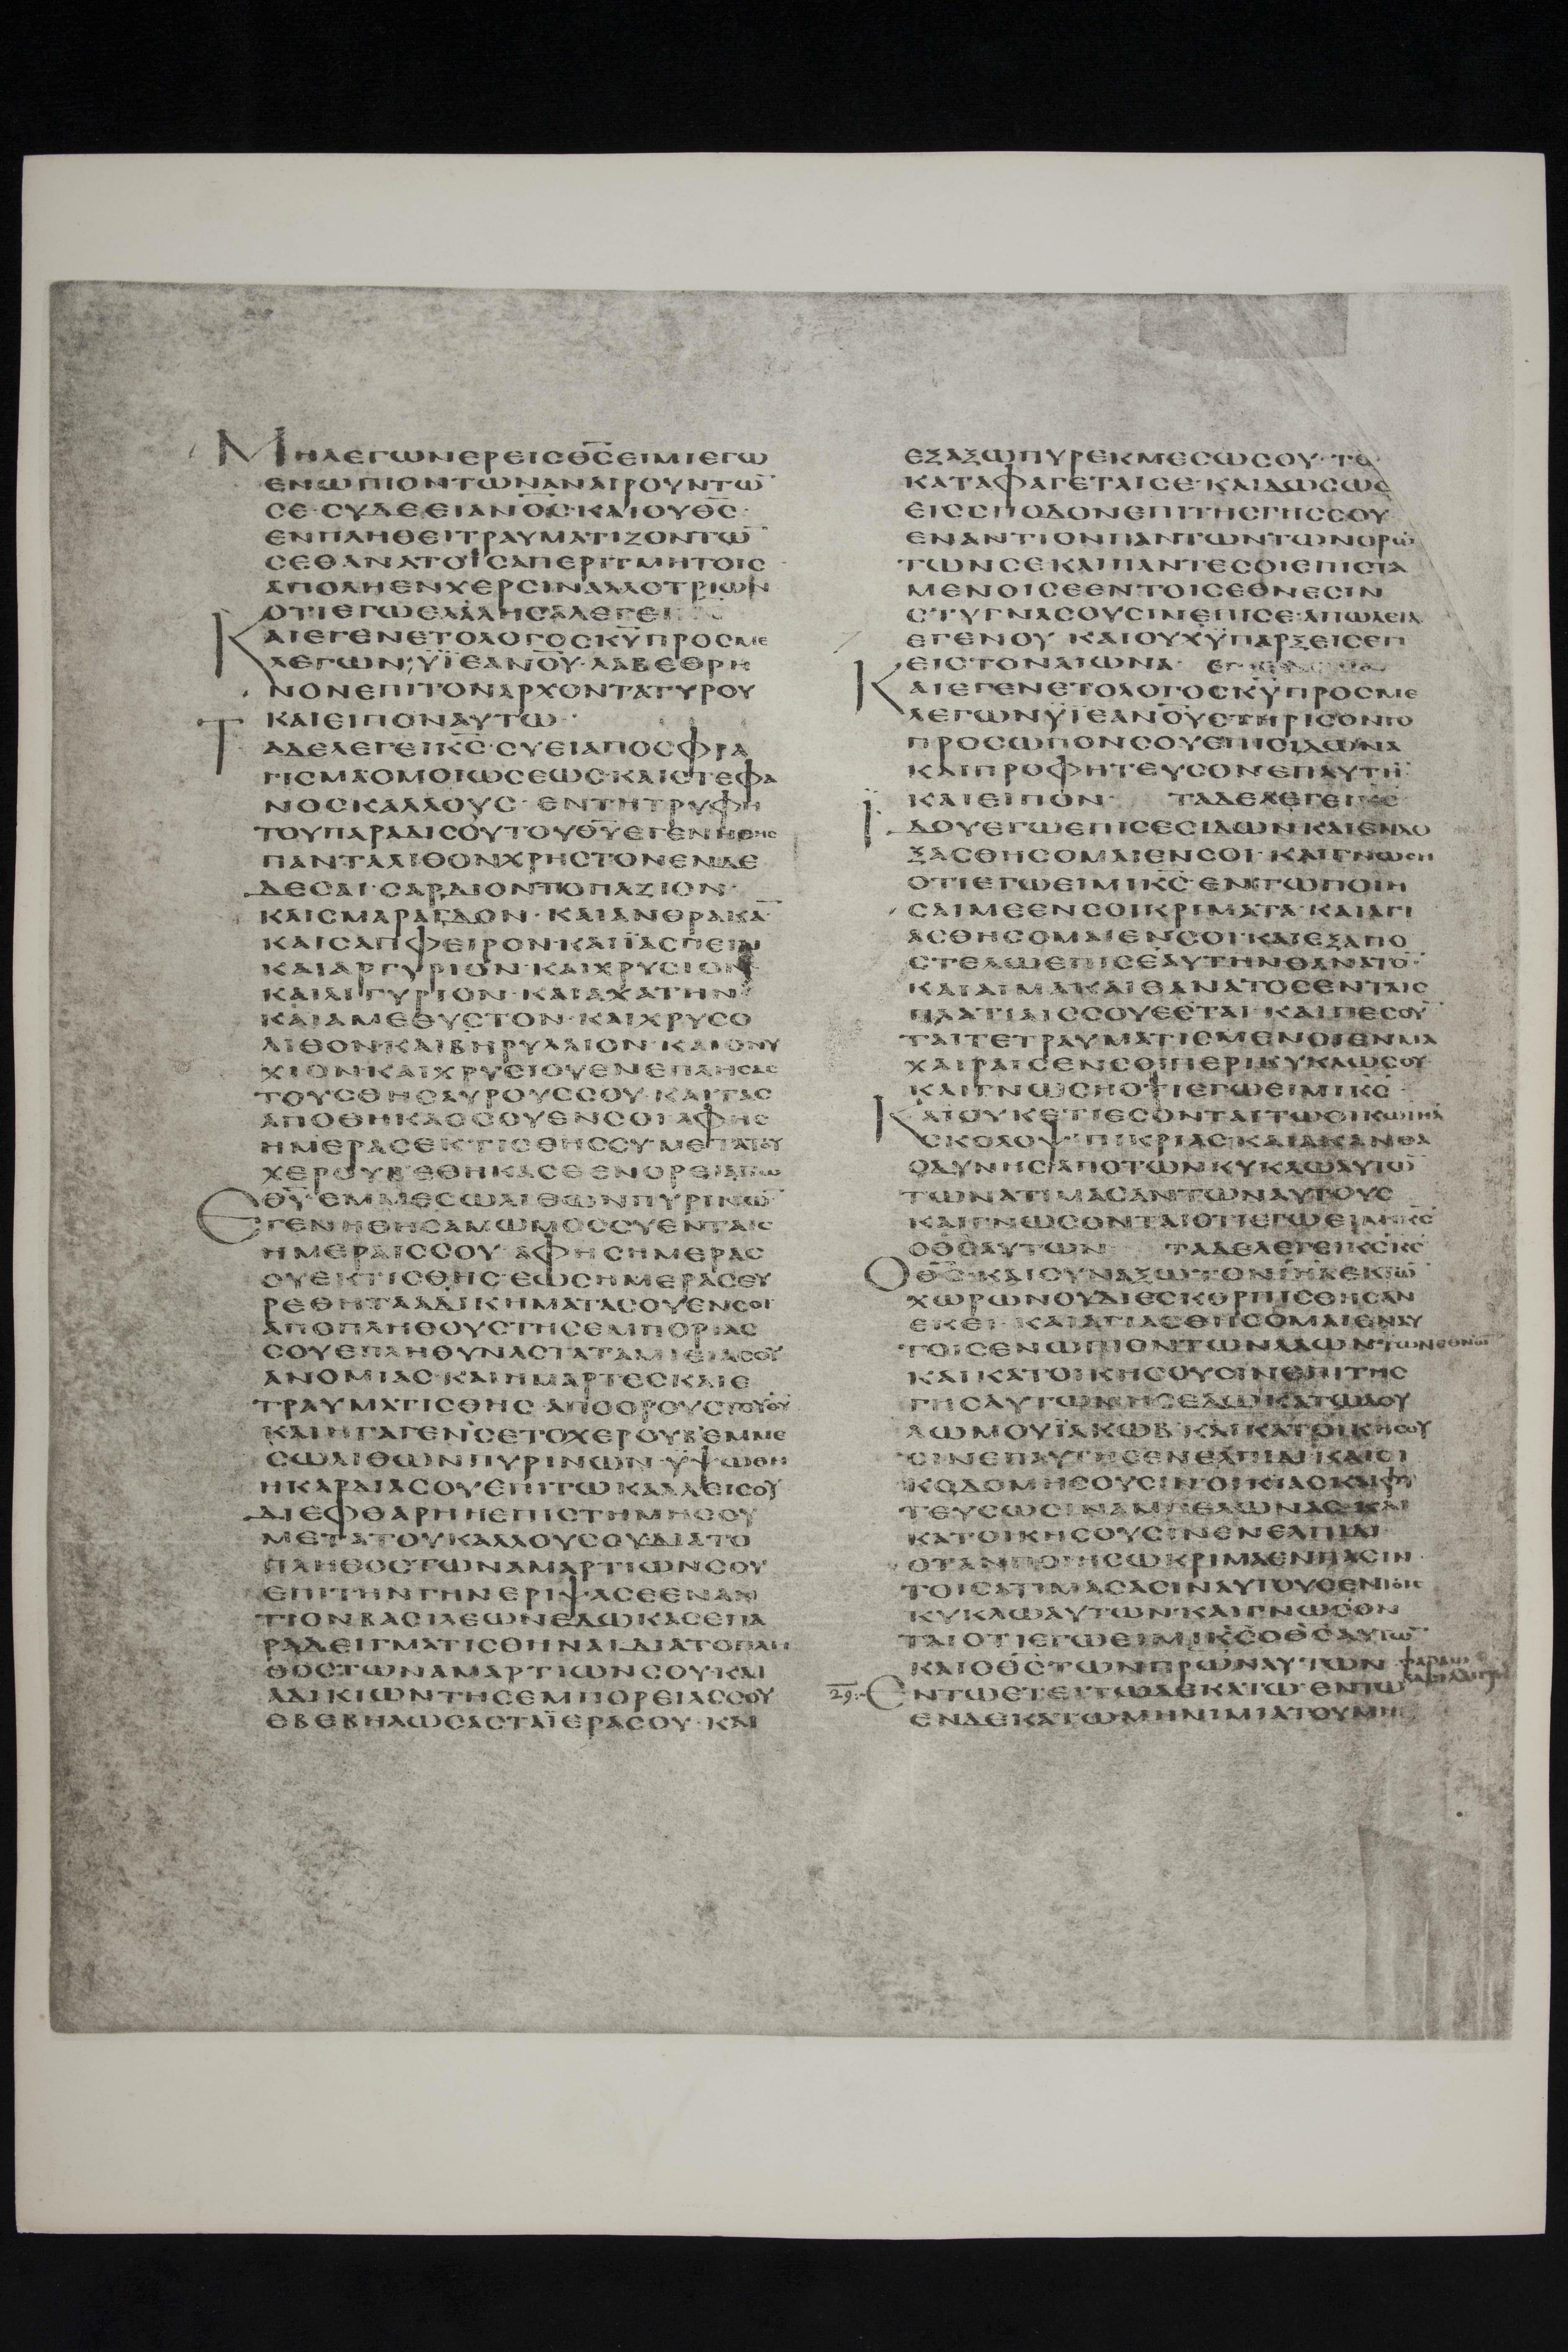 ΜΗΛΕΓΩΝΕΡΕΙCΘ̅C̅ΕΙΜΙΕΓΩ
ΕΝΩΠΙΟΝΤΩΝΑΝΑΙΡΟΥΝΤΩ̅
CΕ·CΥΔΕΕΙΑΝ̅Ο̅C̅·ΚΑΙΟΥΘ̅C̅·
ΕΝΠΛΗΘΕΙΤΡΑΥΜΑΤΙΖΟΝΤΩ̅
CΕΘΑΝΑΤΟΙCΑΠΕΡΙΤΜΗΤΟΙC
ΑΠΟΛΗΕΝΧΕΡCΙΝΑΛΛΟΤΡΙΩΝ
ΟΤΙΕΓΩΕΛΑΛΗCΑΛΕΓΕΙ
ΚΑΙΕΓΕΝΕΤΟΛΟΓΟCΚ̅Υ̅ΠΡΟCΜΕ
ΛΕΓΩΝ;ΫΪΕΑΝ̅Ο̅Υ̅·ΛΑΒΕΘΡΗ
ΝΟΝΕΠΙΤΟΝΑΡΧΟΝΤΑΤΥΡΟΥ
ΚΑΙΕΙΠΟΝΑΥΤΩ·
ΤΑΔΕΛΕΓΕΙΚ̅C̅·CΥΕΙΑΠΟCΦΡΑ
ΓΙCΜΑΟΜΟΙΩCΕΩC·ΚΑΙCΤΕΦΑ
ΝΟCΚΑΛΛΟΥC·ΕΝΤΗΤΡΥΦΗ
ΤΟΥΠΑΡΑΔΙCΟΥΤΟΥΘ̅Υ̅ΕΓΕΝΗΘΗC
ΠΑΝΤΑΛΙΘΟΝΧΡΗCΤΟΝΕΝΔΕ
ΔΕCΑΙ·CΑΡΔΙΟΝΤΟΠΑΖΙΟΝ·
ΚΑΙCΜΑΡΑΓΔΟΝ·ΚΑΙΑΝΘΡΑΚΑ̅
ΚΑΙCΑΠΦΕΙΡΟΝ·ΚΑΙΪΑCΠΕΙΝ
ΚΑΙΑΡΓΥΡΙΟΝ·ΚΑΙΧΡΥCΙΟΝ
ΚΑΙΛΙΓΥΡΙΟΝ·ΚΑΙΑΧΑΤΗΝ
ΚΑΙΑΜΕΘΥCΤΟΝ·ΚΑΙΧΡΥCΟ
ΛΙΘΟΝ·ΚΑΙΒΗΡΥΛΛΙΟΝ·ΚΑΙΟΝΥ
ΧΙΟΝ·ΚΑΙΧΡΥCΙΟΥΕΝΕΠΛΗCΑC
ΤΟΥCΘΗCΑΥΡΟΥCCΟΥ·ΚΑΙΤΑC
ΑΠΟΘΗΚΑCCΟΥΕΝCΟΙ·ΑΦΗC
ΗΜΕΡΑCΕΚΤΙCΘΗCCΥ·ΜΕΤΑΤΟΥ
ΧΕΡΟΥΒ·ΕΘΗΚΑCΕΕΝΟΡΕΙΑΓΙΩ
Θ̅Υ̅·ΕΜΜΕCΩΛΙΘΩΝΠΥΡΙΝΩ̅
ΕΓΕΝΗΘΗCΑΜΩΜΟCCΥΕΝΤΑΙC
ΗΜΕΡΑΙCCΟΥ·ΑΦΗCΗΜΕΡΑC
CΥΕΚΤΙCΘΗC·ΕΩCΗΜΕΡΑCΕΥ
ΡΕΘΗΤΑΑΔΙΚΗΜΑΤΑCΟΥΕΝCΟΙ
ΑΠΟΠΛΗΘΟΥCΤΗCΕΜΠΟΡΙΑC
CΟΥΕΠΛΗΘΥΝΑCΤΑΤΑΜΙΕΙΑCΟΥ
ΑΝΟΜΙΑC·ΚΑΙΗΜΑΡΤΕCΚΑΙΕ
ΤΡΑΥΜΑΤΙCΘΗC·ΑΠΟΟΡΟΥCΤΟΥΘ̅Υ̅
ΚΑΙΗΓΑΓΕΝCΕΤΟΧΕΡΟΥΒ·ΕΜΜΕ
CΩΛΙΘΩΝΠΥΡΙΝΩΝ·ΫΨΩΘΗ
ΗΚΑΡΔΙΑCΟΥΕΠΙΤΩΚΑΛΛΕΙCΟΥ
ΔΙΕΦΘΑΡΗΗΕΠΙCΤΗΜΗCΟΥ
ΜΕΤΑΤΟΥΚΑΛΛΟΥCCΟΥΔΙΑΤΟ
ΠΛΗΘΟCΤΩΝΑΜΑΡΤΙΩΝCΟΥ
ΕΠΙΤΗΝΓΗΝΕΡΙΨΑCΕΕΝΑΝ
ΤΙΟΝΒΑCΙΛΕΩΝΕΔΩΚΑCΕΠΑ
ΡΑΔΕΙΓΜΑΤΙCΘΗΝΑΙ·ΔΙΑΤΟΠΛΗ
ΘΟCΤΩΝΑΜΑΡΤΙΩΝCΟΥ·ΚΑΙ
ΑΔΙΚΙΩΝΤΗCΕΜΠΟΡΕΙΑCCΟΥ
ΕΒΕΒΗΛΩCΑCΤΑΪΕΡΑCΟΥ·ΚΑΙ
ΕΞΑΞΩΠΥΡΕΚΜΕCΩCΟΥ·ΤΟ
ΚΑΤΑΦΑΓΕΤΑΙCΕ·ΚΑΙΔΩCΩC
ΕΙCCΠΟΔΟΝΕΠΙΤΗCΓΗCCΟΥ
ΕΝΑΝΤΙΟΝΠΑΝΤΩΝΤΩΝΟΡΩ̅
ΤΩΝCΕΚΑΙΠΑΝΤΕCΟΙΕΠΙCΤΑ
ΜΕΝΟΙCΕΕΝΤΟΙCΕΘΝΕCΙΝ
CΤΥΓΝΑCΟΥCΙΝΕΠΙCΕ·ΑΠΩΛΕΙΑ
ΕΓΕΝΟΥ·ΚΑΙΟΥΧΫΠΑΡΞΕΙCΕΤΙ
ΕΙCΤΟΝΑΙΩΝΑ·
ΚΑΙΕΓΕΝΕΤΟΛΟΓΟCΚ̅Υ̅ΠΡΟCΜΕ
ΛΕΓΩΝΫΪΕΑΝ̅Ο̅Υ̅CΤΗΡΙCΟΝΤΟ
ΠΡΟCΩΠΟΝCΟΥΕΠΙCΙΔΩΝΑ
ΚΑΙΠΡΟΦΗΤΕΥCΟΝΕΠΑΥΤΗ·
ΚΑΙΕΙΠΟΝ· ΤΑΔΕΛΕΓΕΙΚ̅C̅
ΪΔΟΥΕΓΩΕΠΙCΕCΙΔΩΝ·ΚΑΙΕΝΔΟ
ΞΑCΘΗCΟΜΑΙΕΝCΟΙ·ΚΑΙΓΝΩCΗ
ΟΤΙΕΓΩΕΙΜΙΚ̅C̅·ΕΝΤΩΠΟΙΗ
CΑΙΜΕΕΝCΟΙΚΡΙΜΑΤΑ·ΚΑΙΑΓΙ
ΑCΘΗCΟΜΑΙΕΝCΟΙ·ΚΑΙΕΞΑΠΟ
CΤΕΛΩΕΠΙCΕΑΥΤΗΝΘΑΝΑΤΟ̅·
ΚΑΙΑΙΜΑΚΑΙΘΑΝΑΤΟCΕΝΤΑΙC
ΠΛΑΤΙΑΙCCΟΥΕCΤΑΙ·ΚΑΙΠΕCΟΥ̅
ΤΑΙΤΕΤΡΑΥΜΑΤΙCΜΕΝΟΙΕΝΜΑ
ΧΑΙΡΑΙCΕΝCΟΙΠΕΡΙΚΥΚΛΩCΟΥ
ΚΑΙΓΝΩCΗΟΤΙΕΓΩΕΙΜΙΚ̅C̅·
ΚΑΙΟΥΚΕΤΙΕCΟΝΤΑΙΤΩΟΙΚΩΙΗΛ
CΚΟΛΟΨΠΙΚΡΙΑC·ΚΑΙΑΚΑΝΘΑ
ΟΔΥΝΗCΑΠΟΤΩΝΚΥΚΛΩΑΥΤΩ̅
ΤΩΝΑΤΙΜΑCΑΝΤΩΝΑΥΤΟΥC
ΚΑΙΓΝΩCΟΝΤΑΙΟΤΙΕΓΩΕΙΜΙΚ̅C̅
ΟΘ̅C̅ΑΥΤΩΝ ΤΑΔΕΛΕΓΕΙΚ̅C̅Κ̅C̅
ΟΘ̅C̅·ΚΑΙCΥΝΑΞΩΤΟΝΙ̅Η̅Λ̅ΕΚΤΩ̅
ΧΩΡΩΝΟΥΔΙΕCΚΟΡΠΙCΘΗCΑΝ
ΕΚΕΙ·ΚΑΙΑΓΙΑCΘΗCΟΜΑΙΕΝΑΥ
ΤΟΙCΕΝΩΠΙΟΝΤΩΝΛΑΩΝ·ΤΩΝΕΘΝΩ̅
ΚΑΙΚΑΤΟΙΚΗCΟΥCΙΝΕΠΙΤΗC
ΓΗCΑΥΤΩΝΗCΕΔΩΚΑΤΩΔΟΥ
ΛΩΜΟΥΪΑΚΩΒ·ΚΑΙΚΑΤΟΙΚΗCΟΥ
CΙΝΕΠΑΥΤΗCΕΝΕΛΠΙΔΙ·ΚΑΙΟΙ
ΚΟΔΟΜΗCΟΥCΙΝΟΙΚΙΑC·ΚΑΙΦΥ
ΤΕΥCΩCΙΝΑΜΠΕΛΩΝΑC·ΚΑΙ
ΚΑΤΟΙΚΗCΟΥCΙΝΕΝΕΛΠΙΔΙ
ΟΤΑΝΠΟΙΗCΩΚΡΙΜΑΕΝΠΑCΙΝ
ΤΟΙCΑΤΙΜΑCΑCΙΝΑΥΤΟΥCΕΝΤΟΙC
ΚΥΚΛΩΑΥΤΩΝ·ΚΑΙΓΝΩCΟΝ
ΤΑΙΟΤΙΕΓΩΕΙΜΙΚ̅C̅ΟΘ̅C̅ΑΥΤΩ̅
ΚΑΙΟΘ̅C̅ΤΩΝΠΡΩΝΑΥΤΩΝ
29:- ΕΝΤΩΕΤΕΙΤΩΔΕΚΑΤΩ·ΕΝΤΩ
ΕΝΔΕΚΑΤΩΜΗΝΙΜΙΑΤΟΥΜΗ